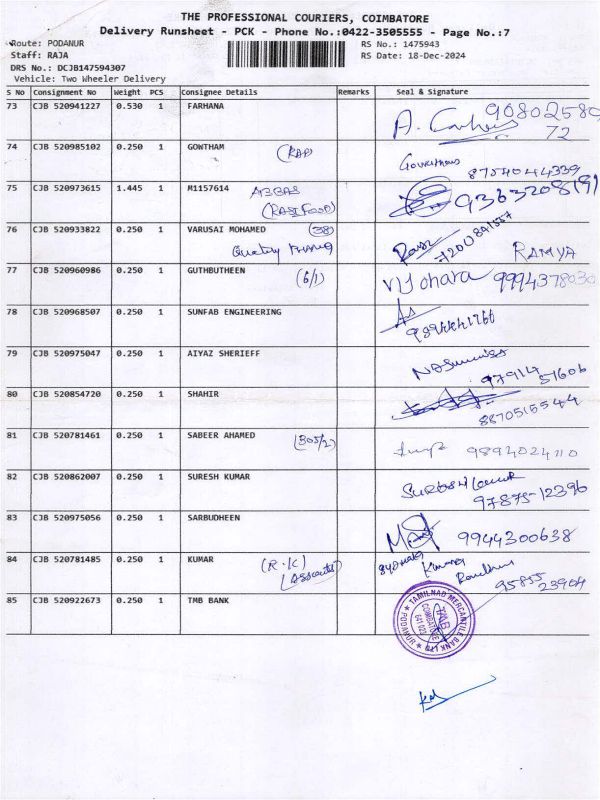 THE PROFESSIONAL COURIERS, COIMBATORE
Delivery Runsheet - PCK - Phone No.:0422-3505555 - Page No.:7
Route: PODANUR
RS No.: 1475943
Staff: RAJA
RS Date: 18-Dec-2024
DRS No.: DCJB147594307
Vehicle: Two Wheeler Delivery
S No Consignment No Weight PCS Consignee Details Remarks Seal & Signature
73 CJB 520941227 0.530 1 FARHANA 90802580
72
74 CJB 520985102 0.250 1 GOWTHAM Gowtham
8754044339
75 CJB 520973615 1.445 1 M1157614 ABBAS
(RASI FOOD)
76 CJB 520933822 0.250 1 VARUSAI MOHAMED (38) RAMYA
Quality
77 CJB 520960986 0.250 1 GUTHBUTHEEN (6/1) 9994378030
78 CJB 520968507 0.250 1 SUNFAB ENGINEERING
79 CJB 520975047 0.250 1 AIYAZ SHERIEFF
97914 51606
80 CJB 520854720 0.250 1 SHAHIR
8870515544
81 CJB 520781461 0.250 1 SABEER AHAMED (305/2) 9894024110
82 CJB 520862007 0.250 1 SURESH KUMAR
97875-12396
83 CJB 520975056 0.250 1 SARBUDHEEN 9944300638
84 CJB 520781485 0.250 1 KUMAR (R.K) Kumar
95855 23904
85 CJB 520922673 0.250 1 TMB BANK
TAMILNAD MERCANTILE BANK LTD
PODANUR
TMB
COIMBATORE
641 023